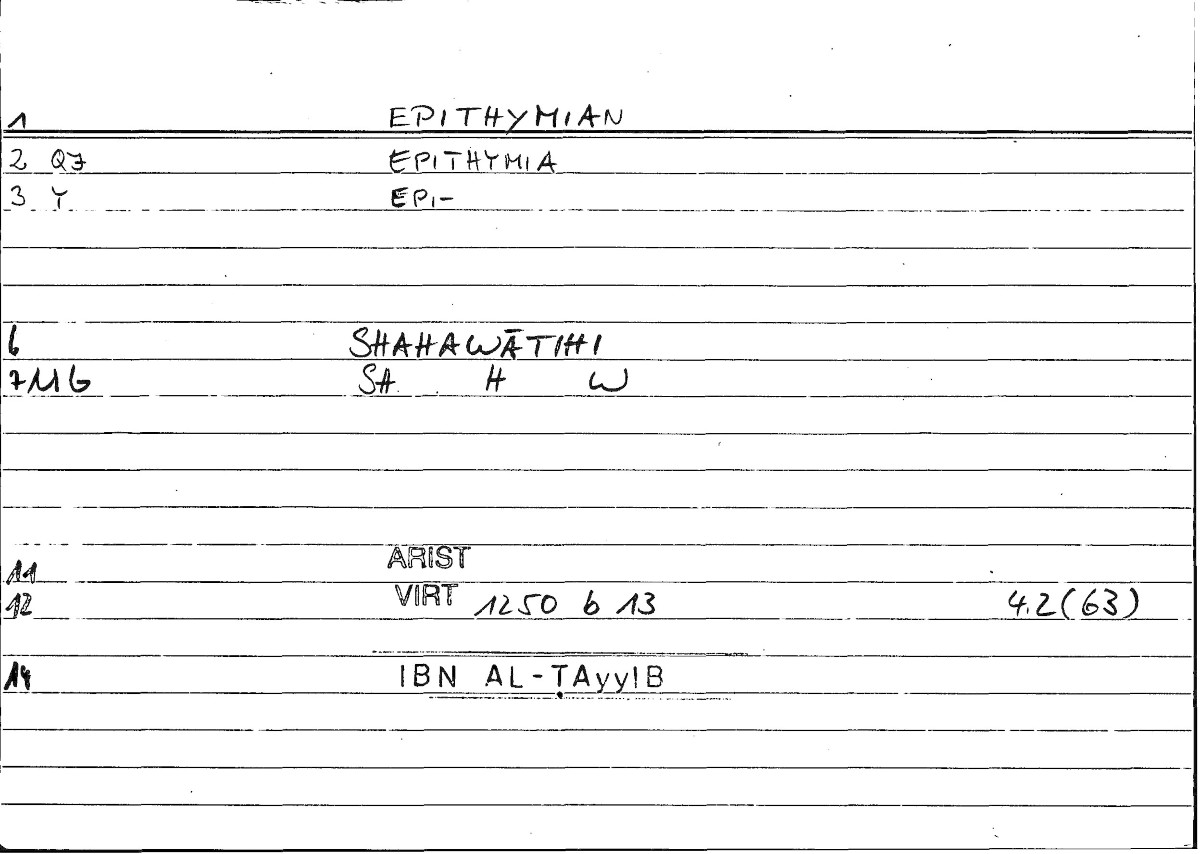 1 EPITHYMIAN
2 QJ EPITHYMIA
3 Y EPI-
6 SHAHAWĀTIHI
7 M6 SH H W
11 ARIST
12 VIRT 1250 b 13 4.2(63)
14 IBN AL-ṬAyyIB